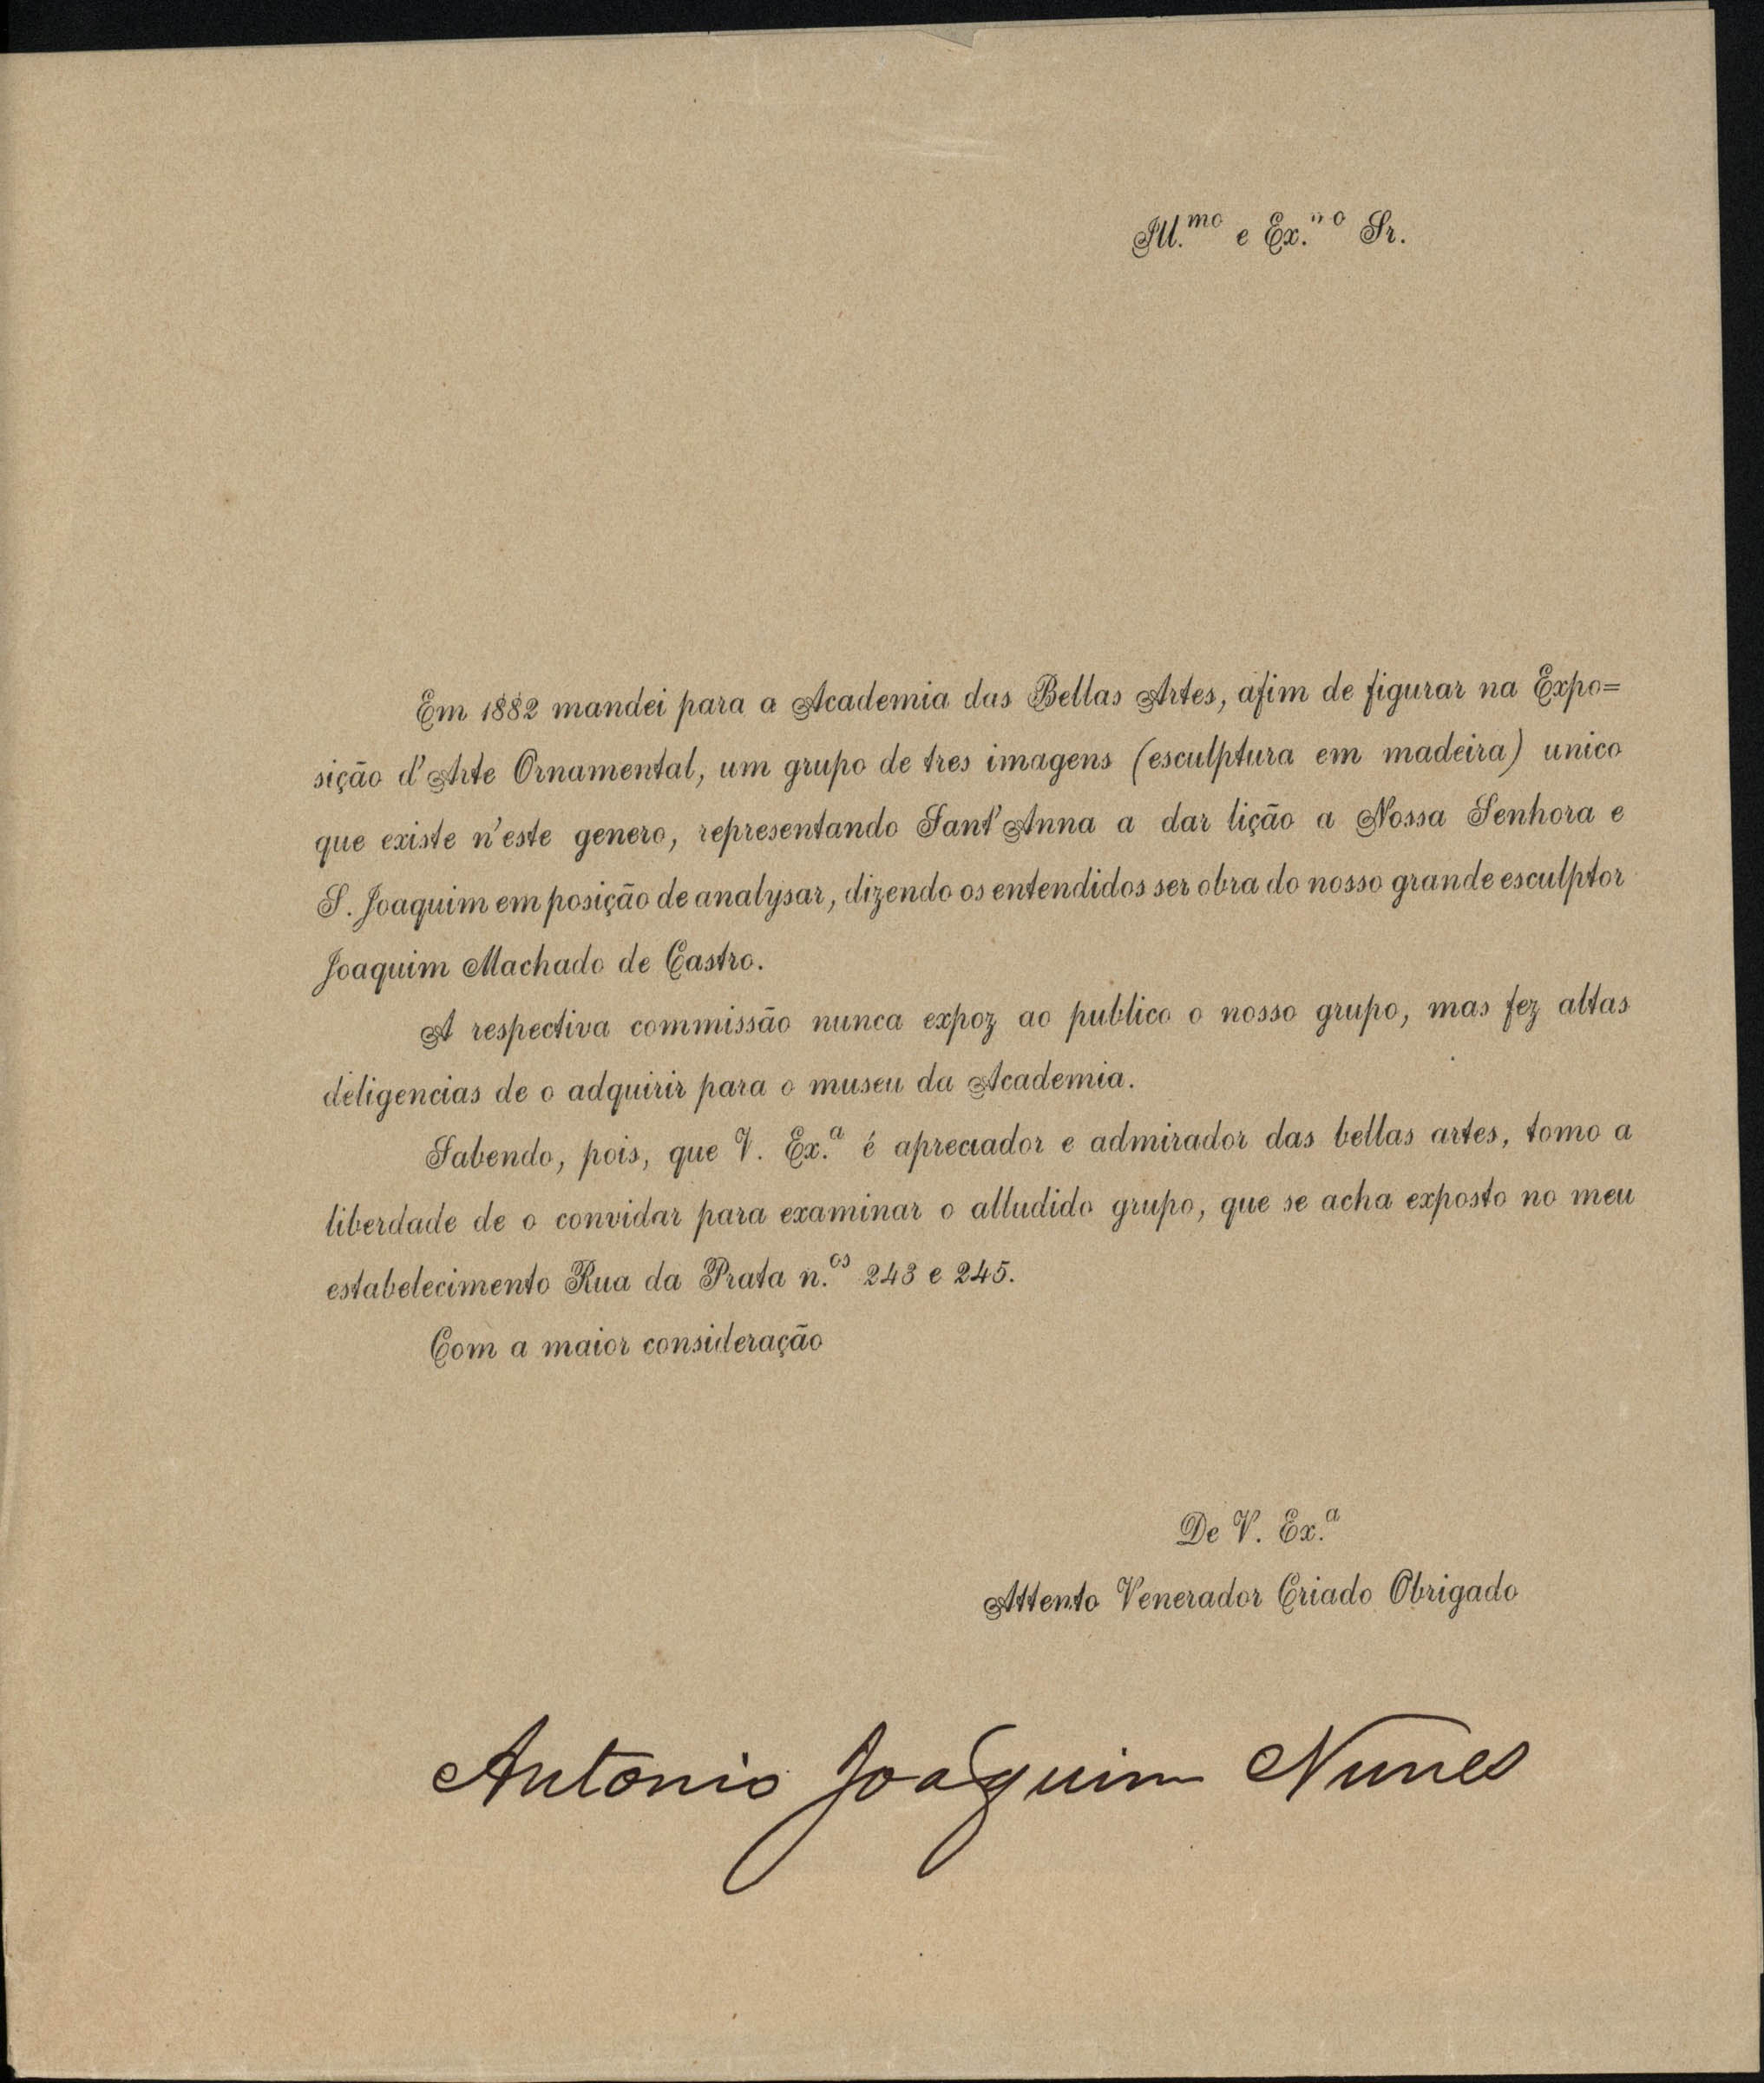 Ill.mo e Ex.mo Sr.
Em 1882 mandei para a Academia das Bellas Artes, afim de figurar na Expo=
sição d'Arte Ornamental, um grupo de tres imagens (esculptura em madeira) unico
que existe n'este genero, representando Sant'Anna a dar lição a Nossa Senhora e
S. Joaquim em posição de analysar, dizendo os entendidos ser obra do nosso grande esculptor
Joaquim Machado de Castro.
A respectiva commissão nunca expoz ao publico o nosso grupo, mas fez altas
deligencias de o adquirir para o museu da Academia.
Sabendo, pois, que V. Ex.a é apreciador e admirador das bellas artes, tomo a
liberdade de o convidar para examinar o alludido grupo, que se acha exposto no meu
estabelecimento Rua da Prata n.os 243 e 245.
Com a maior consideração
De V. Ex.a
Attento Venerador Criado Obrigado
Antonio Joaquim Nunes